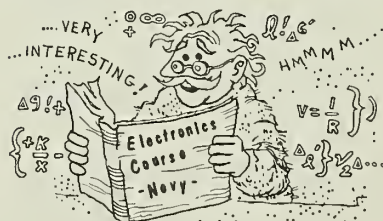 ....VERY
...INTERESTING!
HMMMM...
Δ9!+
V=1/R
{+K/x-
Electronics
Course
-Navy-